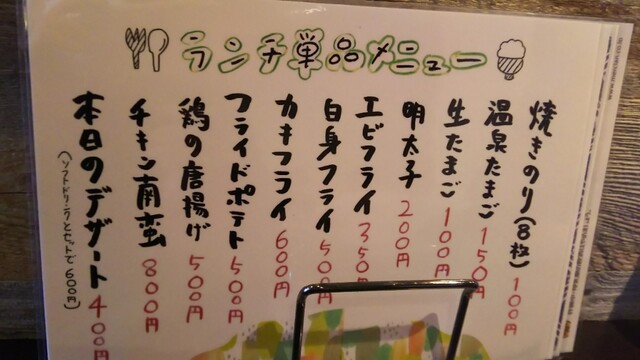 ランチ単品メニュー
焼きのり(8枚) 100円
温泉たまご 150円
生たまご 100円
明太子 200円
エビフライ 350円
白身フライ 500円
カキフライ 600円
フライドポテト 500円
鶏の唐揚げ 500円
チキン南蛮 800円
本日のデザート 400円
(ソフトドリンクとセットで600円)